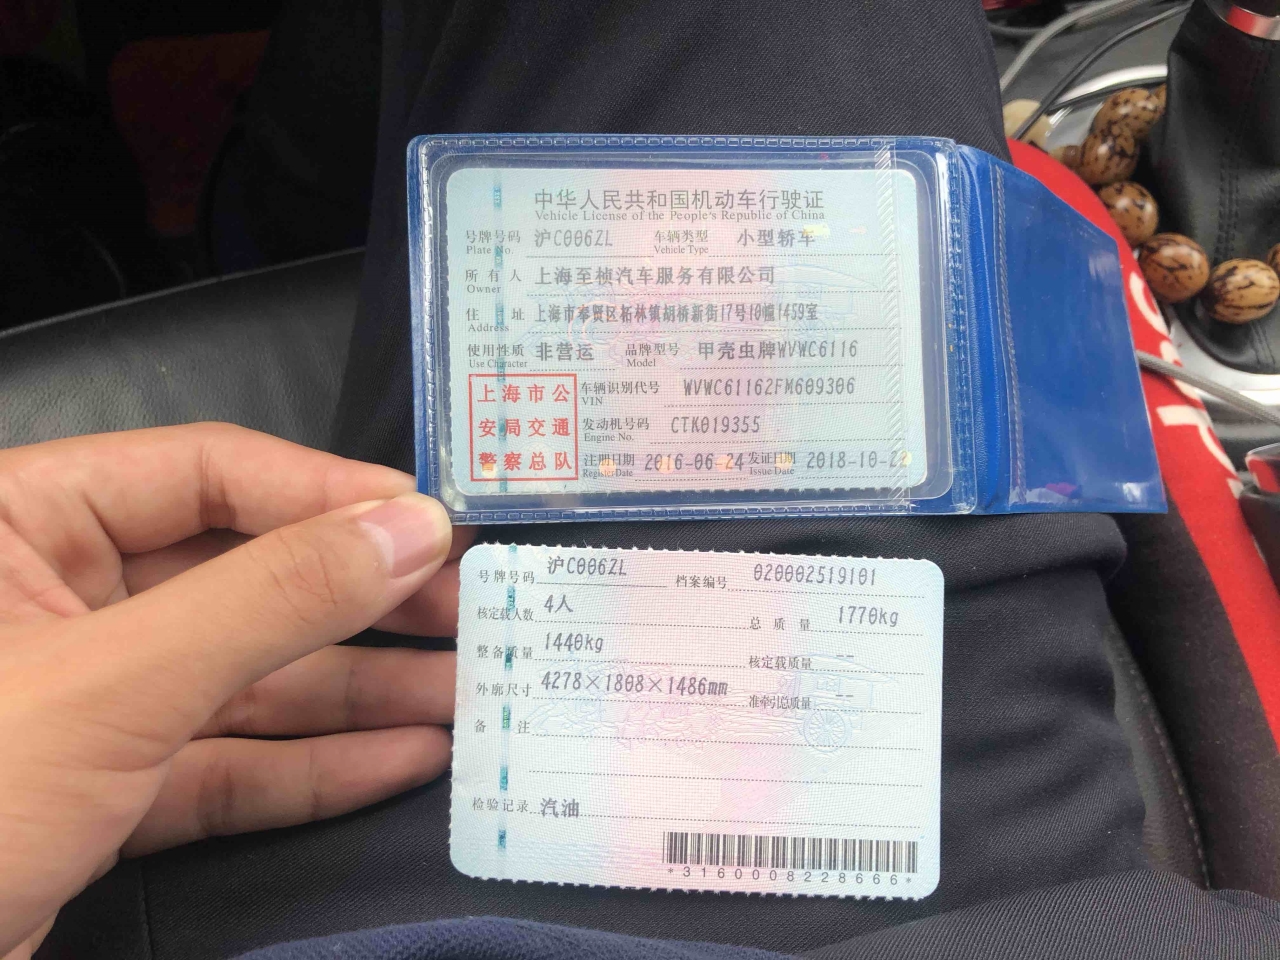 中华人民共和国机动车行驶证
Vehicle License of the People's Republic of China
号牌号码 沪C006ZL 车辆类型 小型轿车
Plate No. Vehicle Type
所有人 上海至桢汽车服务有限公司
Owner
住址 上海市奉贤区柘林镇胡桥新街17号10幢1459室
Address
使用性质 非营运 品牌型号 甲壳虫牌WVWC6116
Use Character Model
上海市公
安局交通
警察总队
车辆识别代号 WVWC61162FM609306
VIN
发动机号码 CTK019355
Engine No.
注册日期 2016-06-24 发证日期 2018-10-22
Register Date Issue Date
号牌号码 沪C006ZL 档案编号 020002519101
核定载人数 4人 总质量 1770kg
整备质量 1440kg 核定载质量 --
外廓尺寸 4278×1808×1486mm 准牵引总质量 --
备注
检验记录 汽油
*3160008228666*